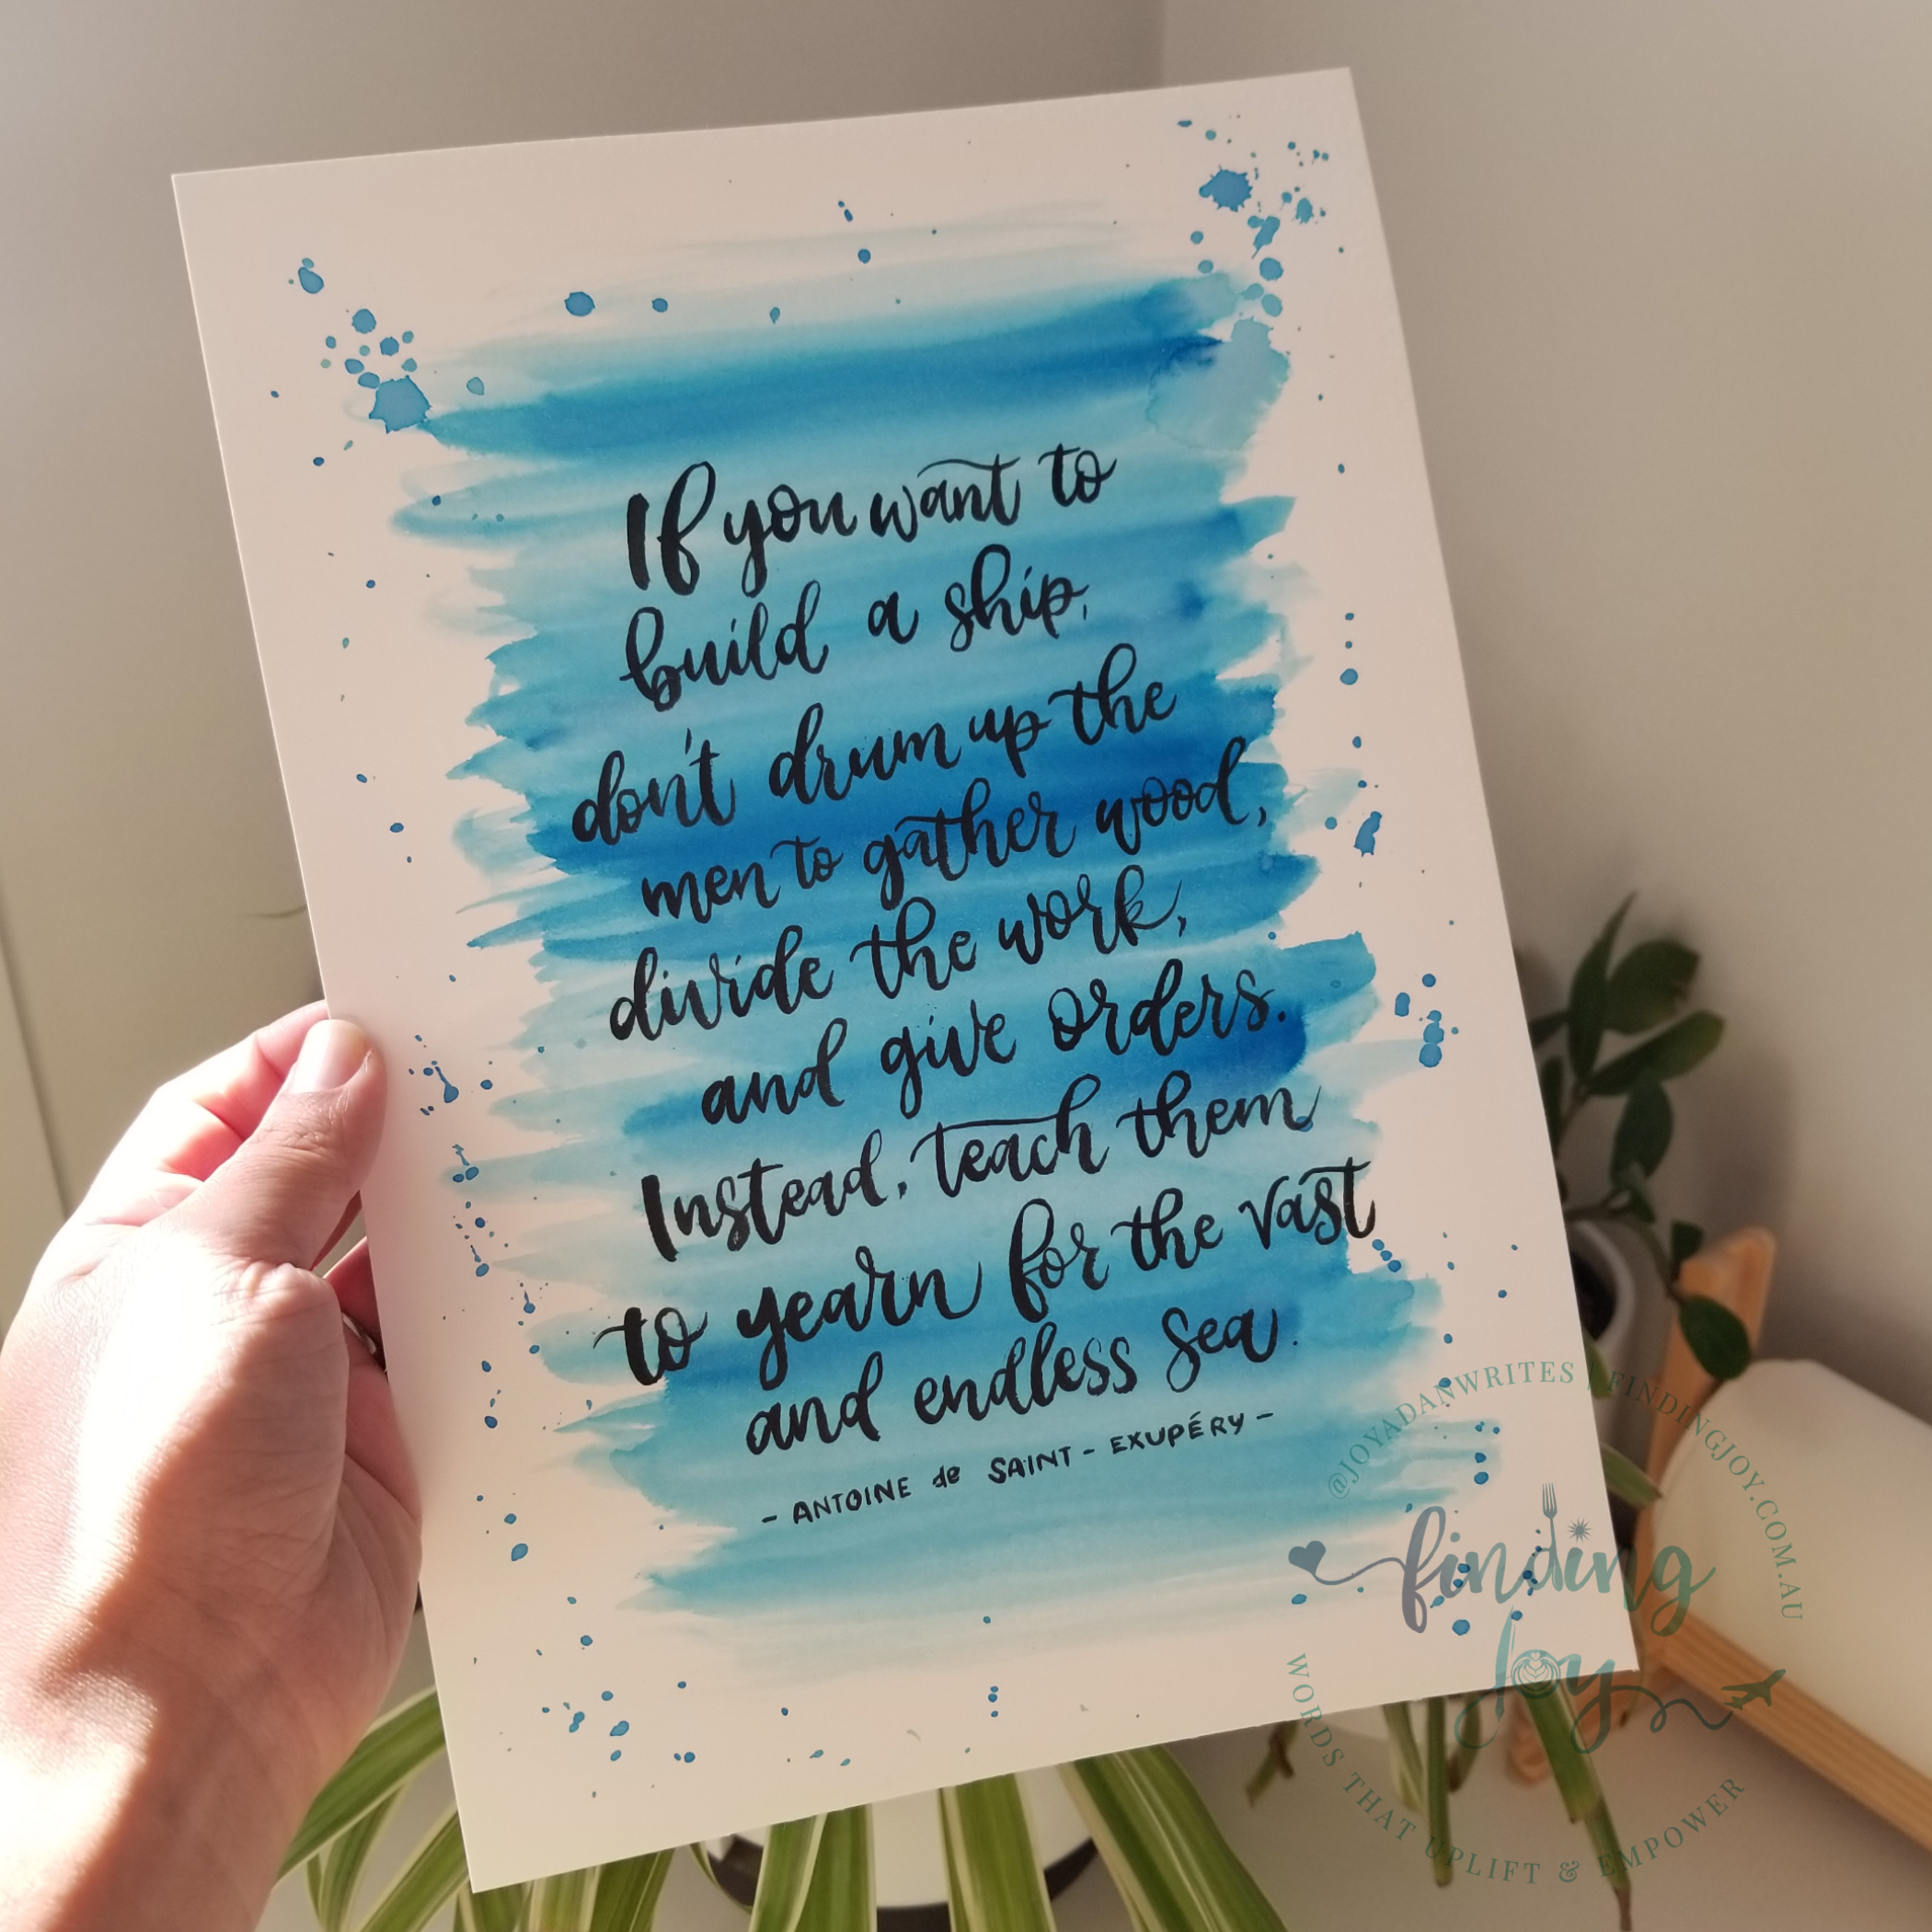 If you want to
build a ship,
don't drum up the
men to gather wood,
divide the work,
and give orders.
Instead, teach them
to yearn for the vast
and endless sea.
- ANTOINE de SAINT-EXUPÉRY -
@JOYADANWRITES | FINDINGJOY.COM.AU
finding
Joy
WORDS THAT UPLIFT & EMPOWER